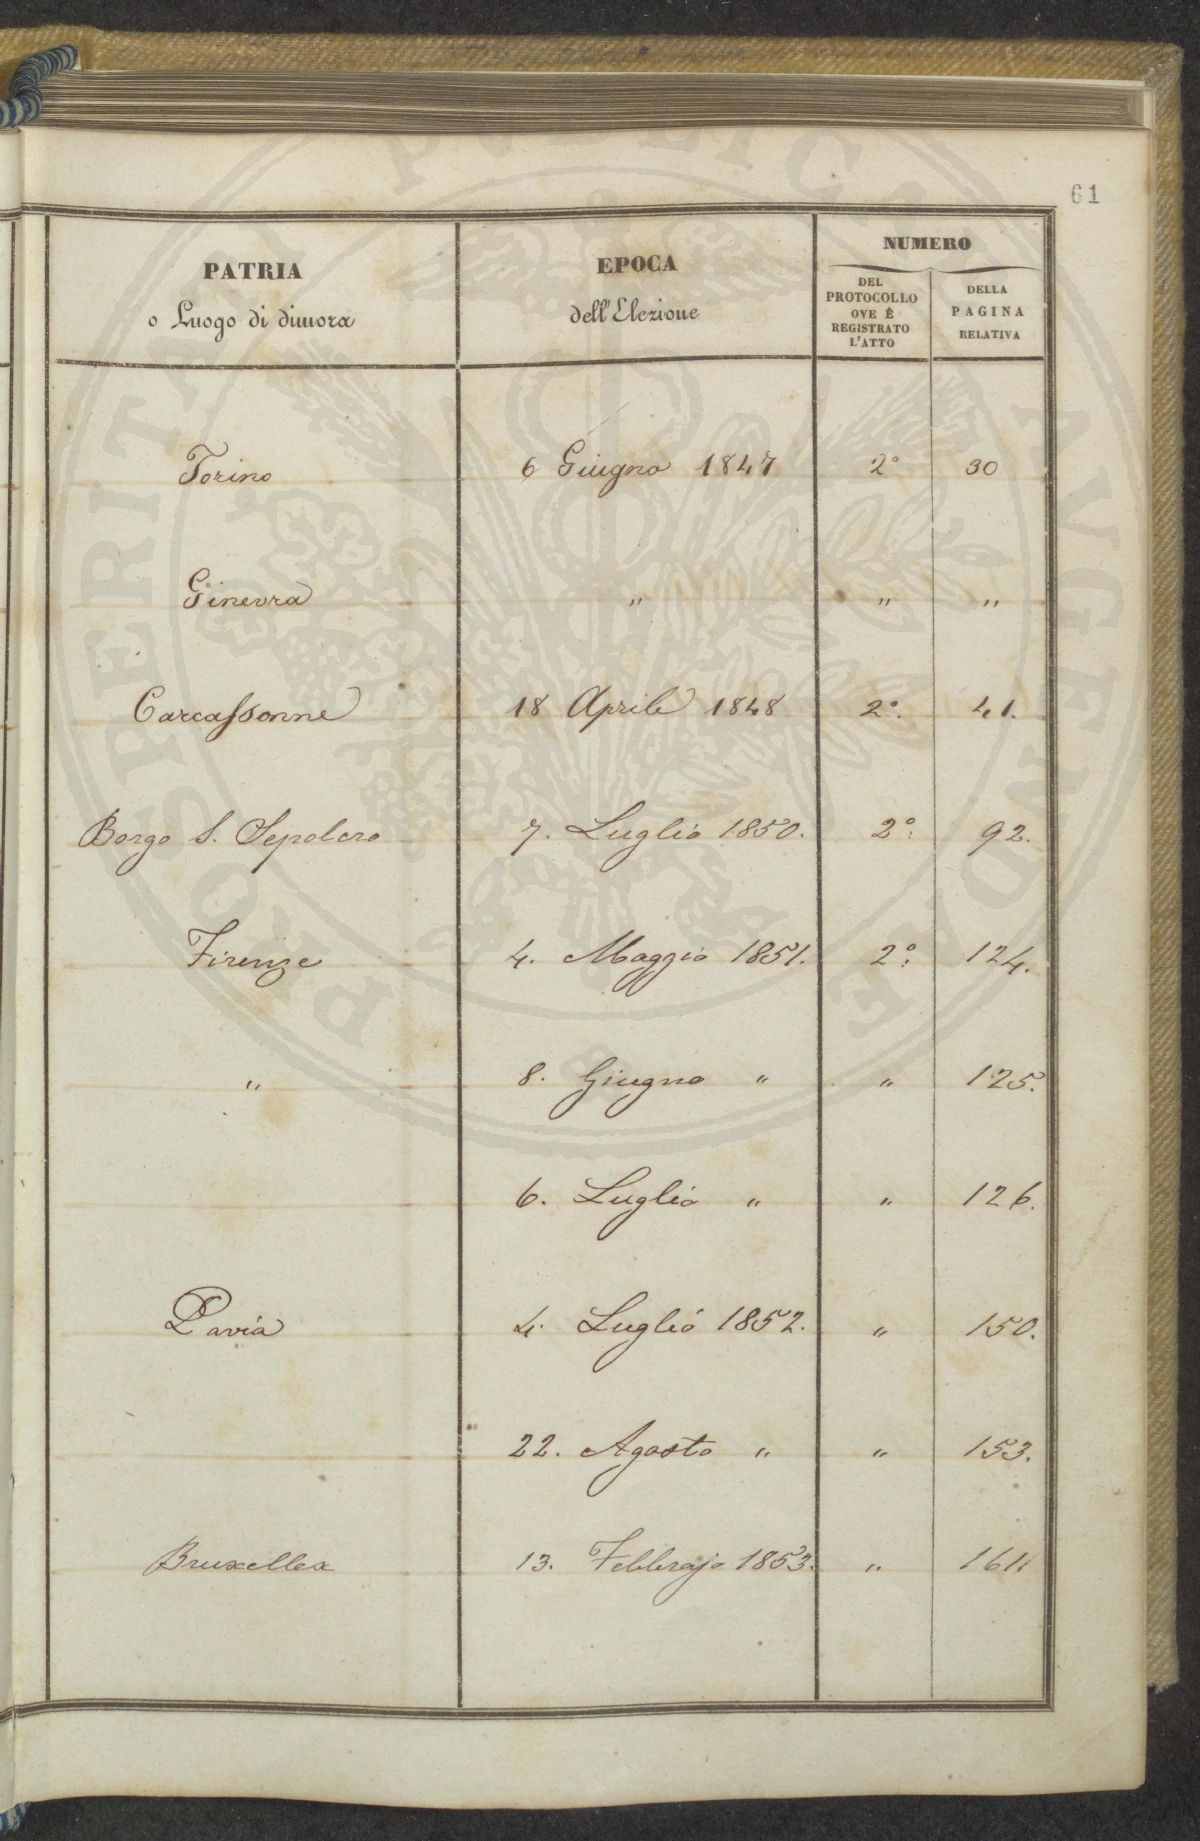 61
PATRIA
o Luogo di dimora
EPOCA
dell'Elezione
NUMERO
DEL
PROTOCOLLO
OVE È
REGISTRATO
L'ATTO
DELLA
PAGINA
RELATIVA
Torino 6 Giugno 1847 2° 30
Ginevra " " "
Carcassonne 18 Aprile 1848 2°. 41.
Borgo S. Sepolcro 7. Luglio 1850. 2°. 92.
Firenze 4. Maggio 1851. 2°. 124.
" 8. Giugno " " 125.
6. Luglio " " 126.
Pavia 4. Luglio 1852. " 150.
22. Agosto " " 153.
Bruxelles 13. Febbrajo 1853. "
PROSPERITATI PVBLICAE AVGENDAE